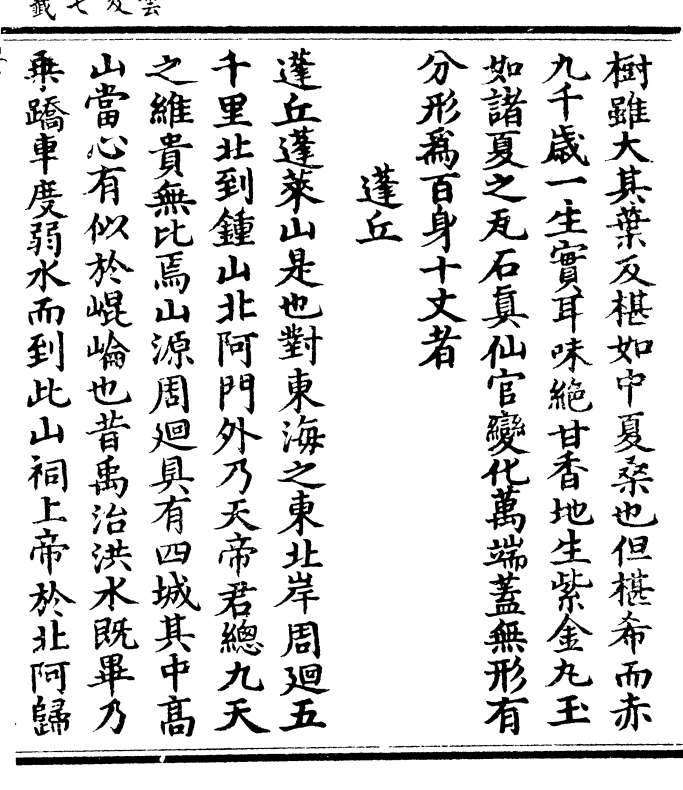 樹雖大其葉及椹如中夏桑也但椹希而赤
九千歲一生實耳味絕甘香地生紫金九玉
如諸夏之瓦石真仙官變化萬端蓋無形有
分形爲百身十丈者
蓬丘
蓬丘蓬萊山是也對東海之東北岸周廻五
千里北到鍾山北阿門外乃天帝君總九天
之維貴無比焉山源周廻具有四城其中高
山當心有似於崐崘也昔禹治洪水既畢乃
乗蹻車度弱水而到此山祠上帝於北阿歸